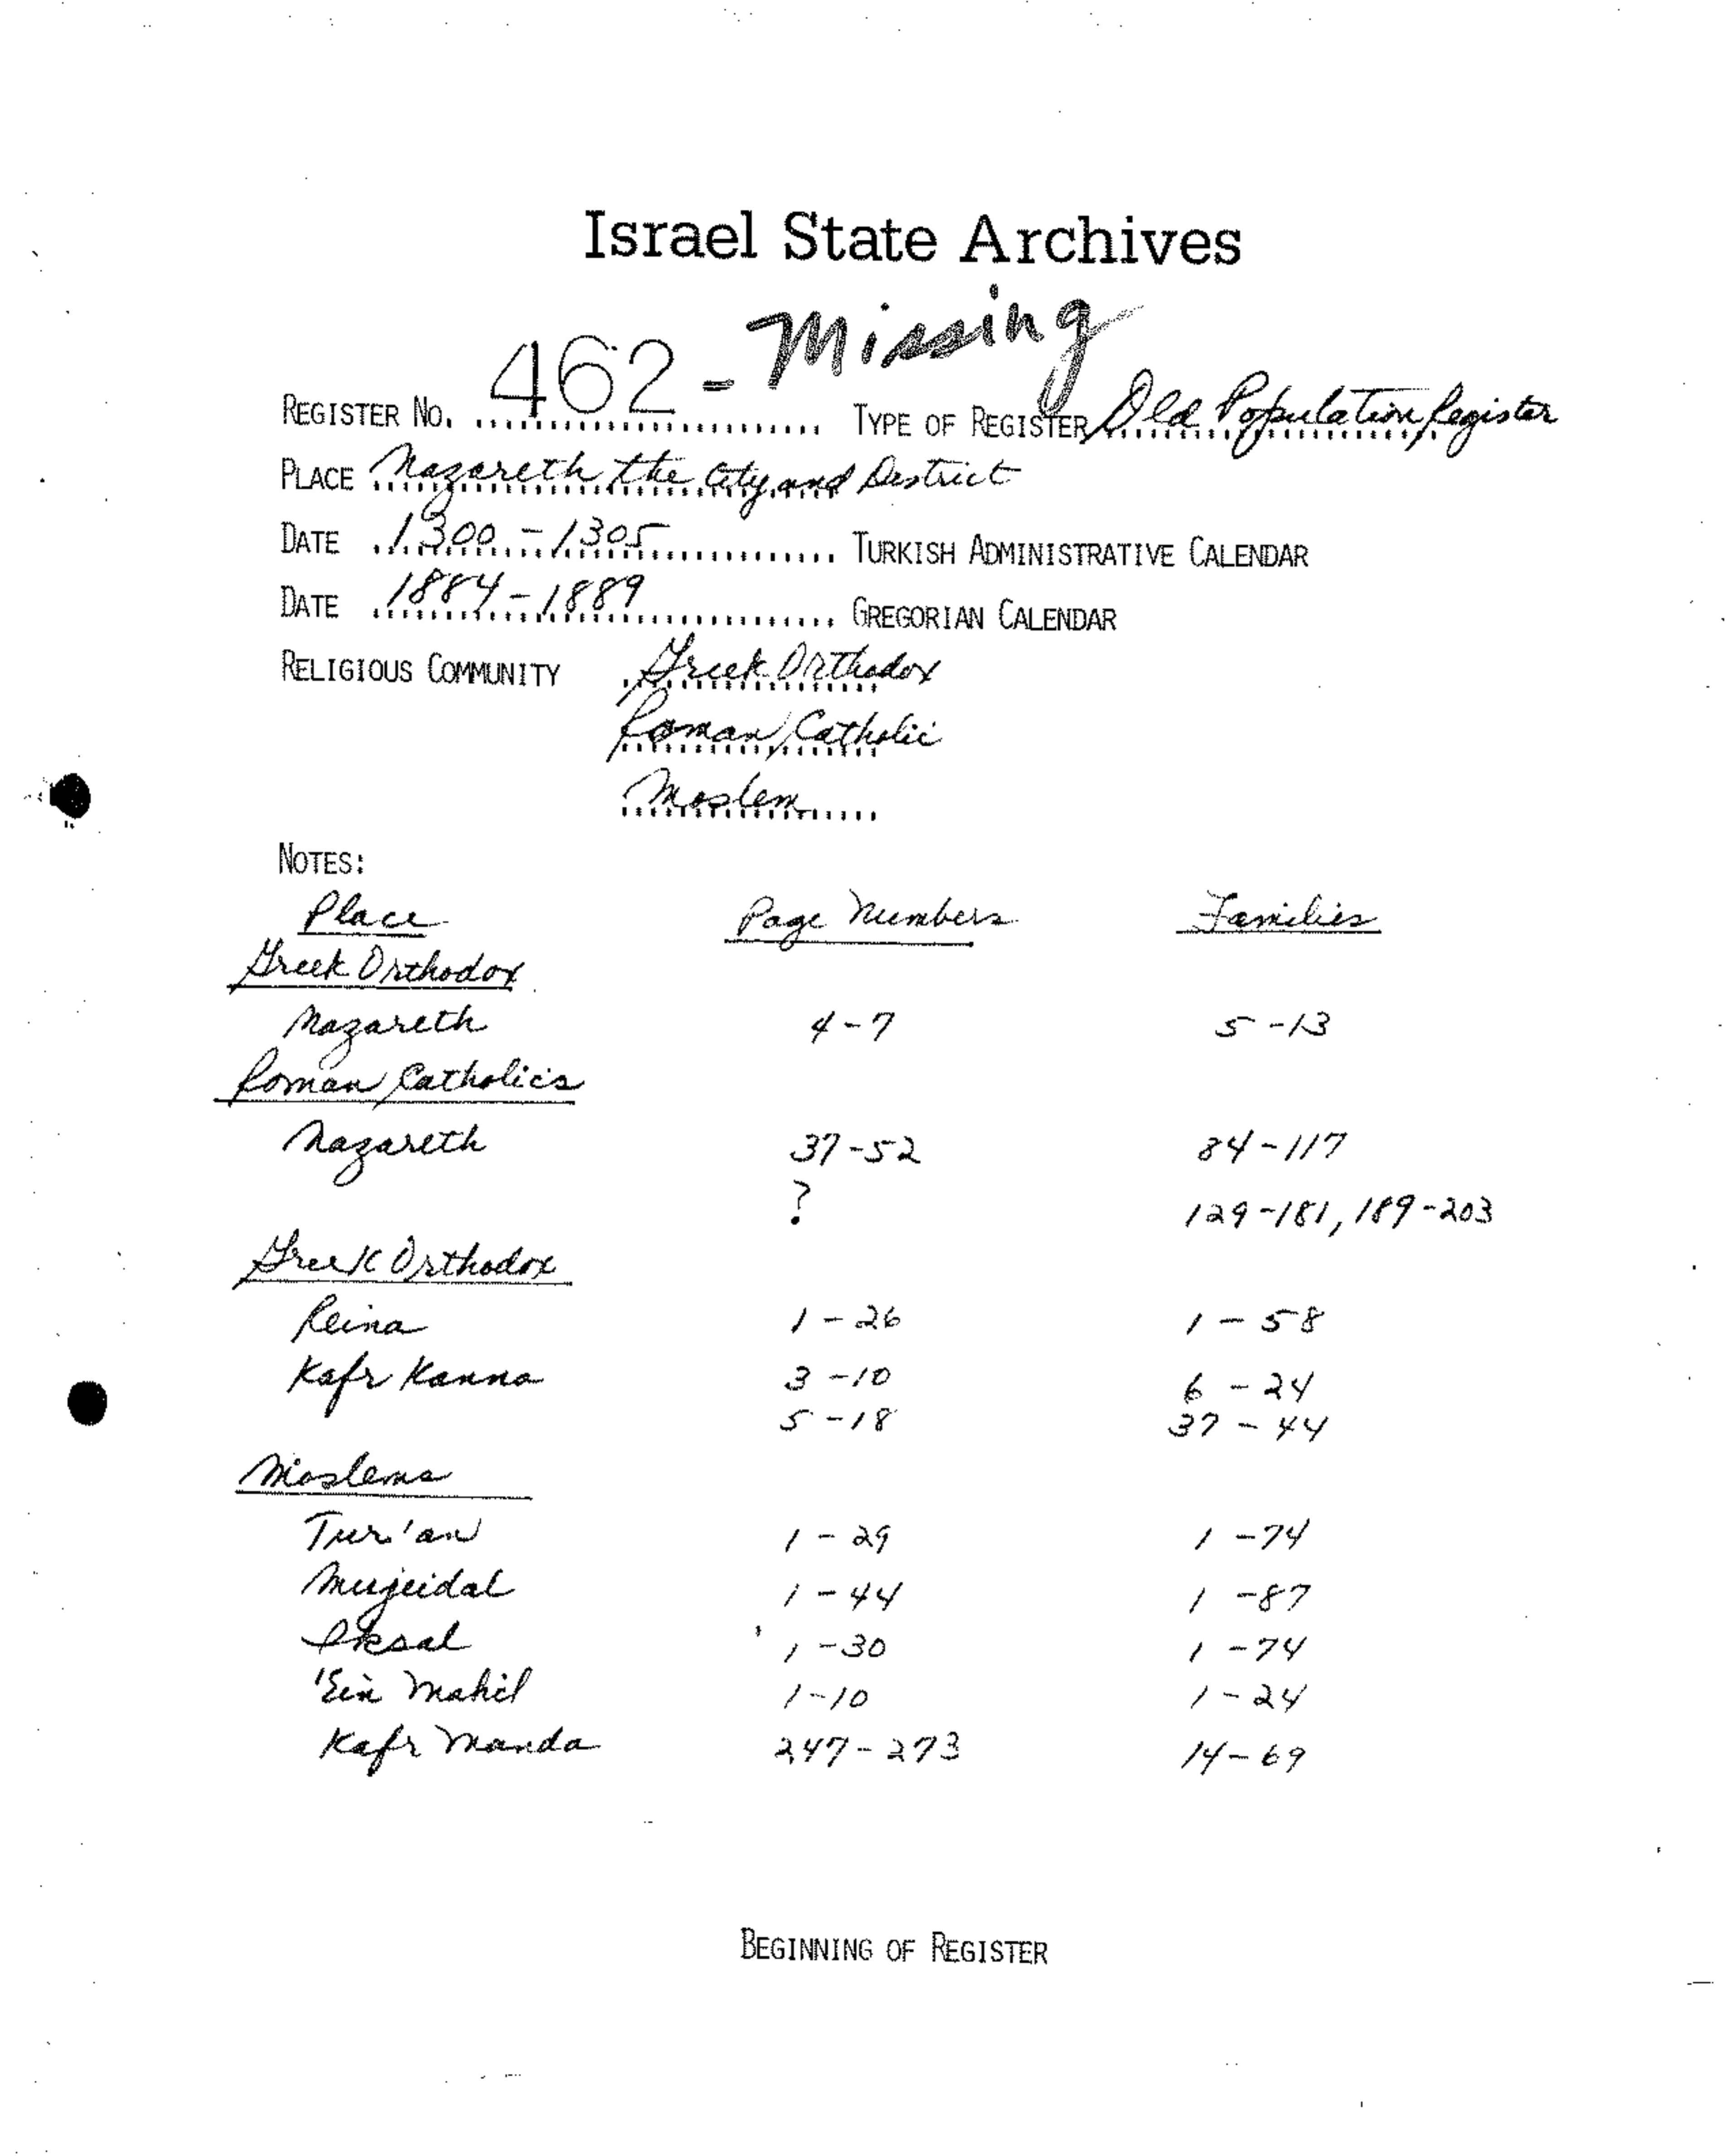 Israel State Archives
REGISTER NO. 462 - Missing TYPE OF REGISTER Old Population Register
PLACE Nazareth the City and District
DATE 1300 - 1305 TURKISH ADMINISTRATIVE CALENDAR
DATE 1884 - 1889 GREGORIAN CALENDAR
RELIGIOUS COMMUNITY Greek Orthodox
Roman Catholic
Moslem
NOTES:
Place Page Numbers Families
Greek Orthodox
Nazareth 4 - 7 5 - 13
Roman Catholics
Nazareth 37 - 52 84 - 117
? 129 - 181, 189 - 203
Greek Orthodox
Reina 1 - 26 1 - 58
Kafr Kanna 3 - 10 6 - 24
5 - 18 37 - 44
Moslems
Tur'an 1 - 29 1 - 74
Mujeidal 1 - 44 1 - 87
Iksal 1 - 30 1 - 74
'Ein Mahil 1 - 10 1 - 24
Kafr Manda 247 - 273 14 - 69
BEGINNING OF REGISTER